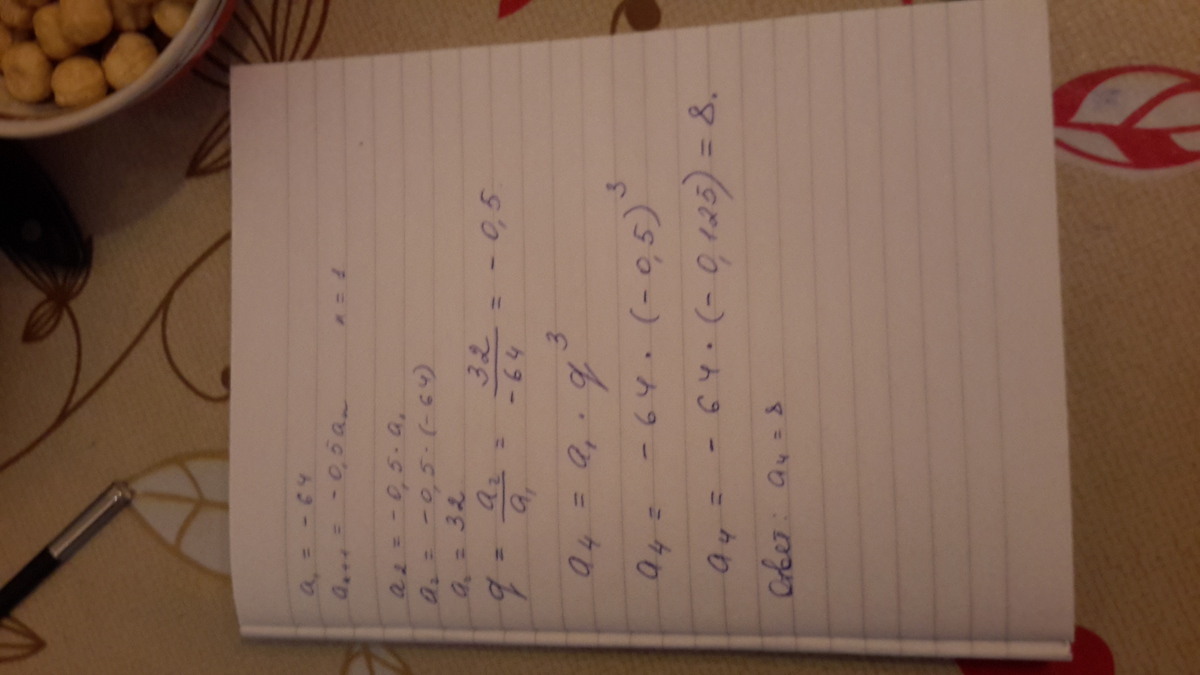 a₁ = - 64
aₙ₊₁ = - 0,5aₙ n = 1
a₂ = - 0,5 · a₁
a₂ = - 0,5 · (- 64)
a₂ = 32
q = a₂/a₁ = 32/- 64 = - 0,5
a₄ = a₁ · q³
a₄ = - 64 · (- 0,5)³
a₄ = - 64 · (- 0,125) = 8.
Ответ: a₄ = 8